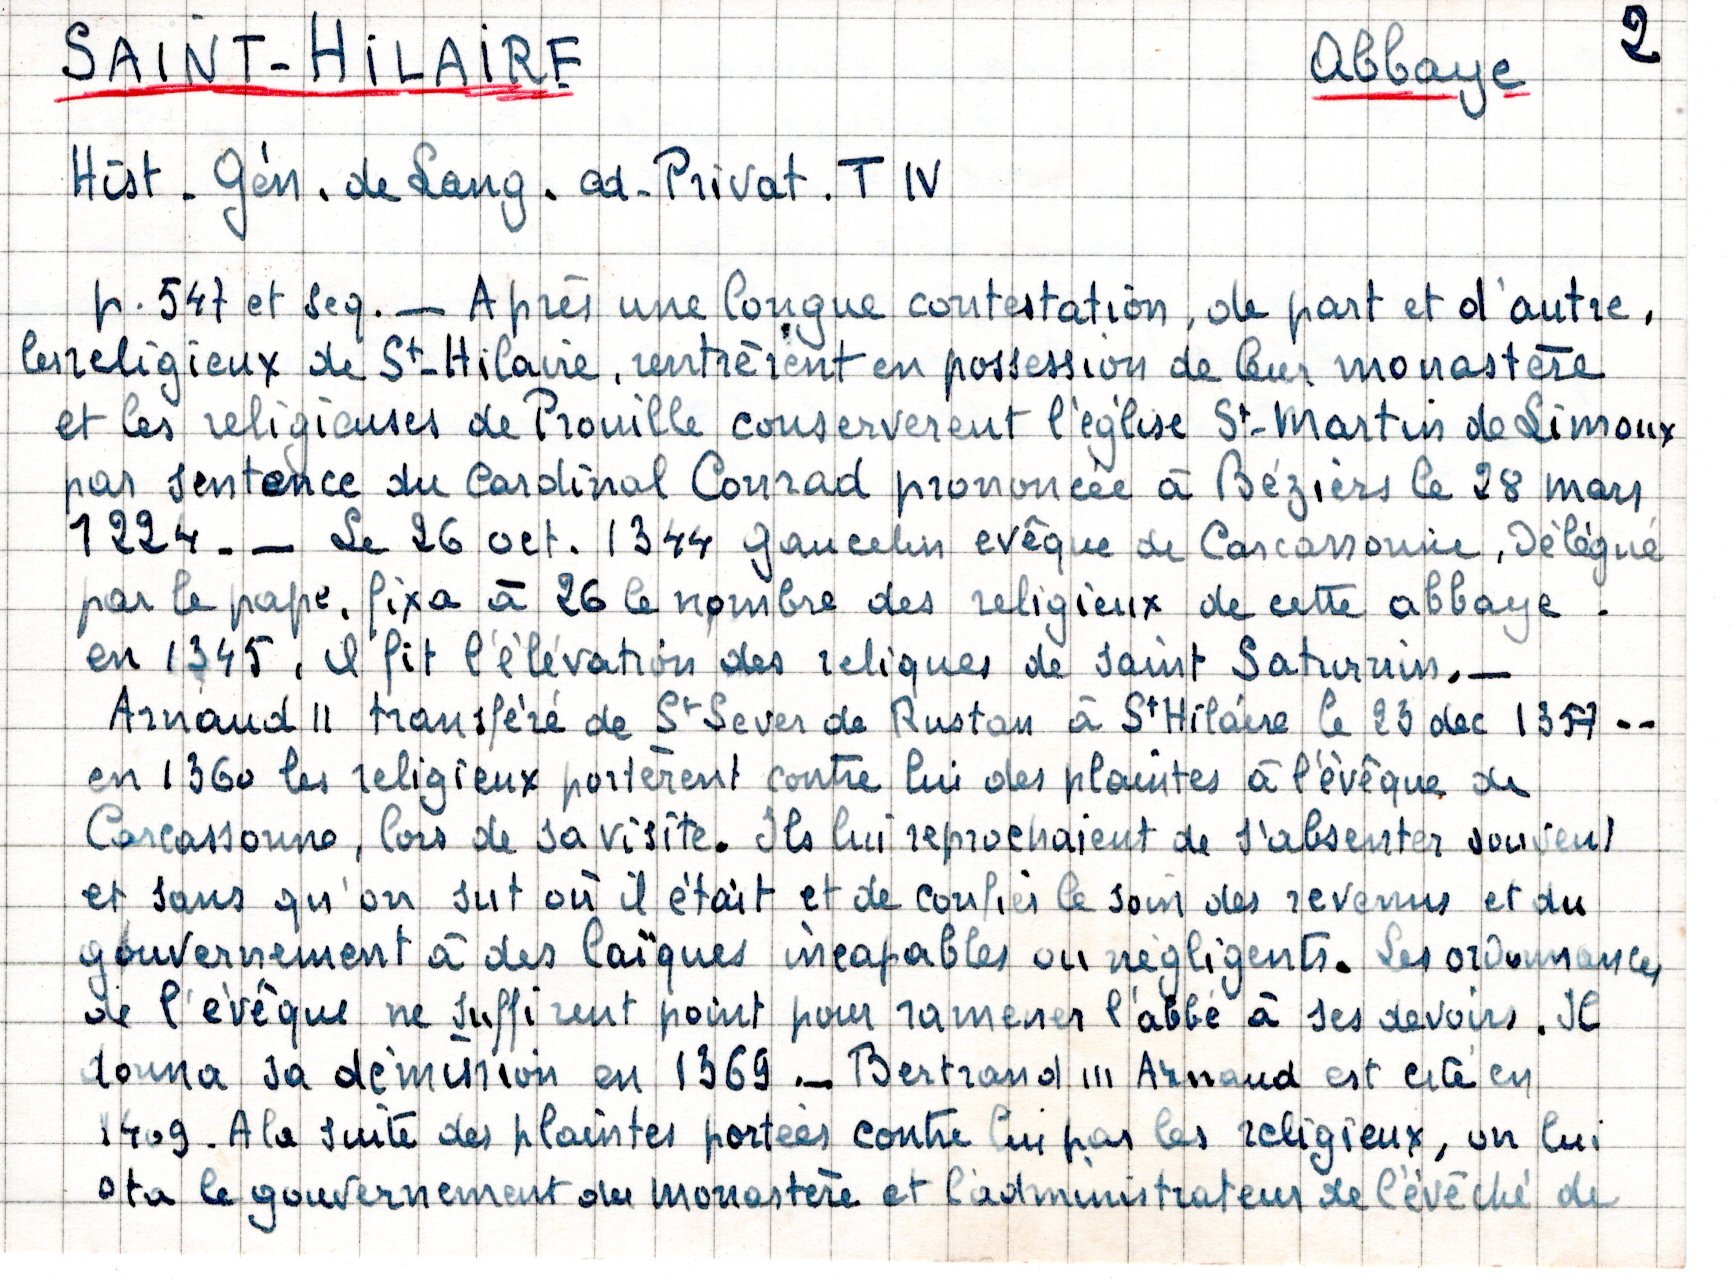 SAINT-HILAIRE Abbaye 2
Hist. Gén. de Lang. ed. Privat. T IV
p. 547 et seq. — Après une longue contestation, de part et d'autre,
les religieux de St-Hilaire, rentrèrent en possession de leur monastère
et les religieuses de Prouille conserverent l'église St-Martin de Limoux
par sentence du Cardinal Conrad prononcée à Béziers le 28 mars
1224. — Le 26 oct. 1344 Gaucelin evêque de Carcassonne, Délégué
par le pape, fixa à 26 le nombre des religieux de cette abbaye.
en 1345, il fit l'élévation des reliques de saint Saturnin. —
Arnaud II transféré de St Sever de Rustan à St Hilaire le 23 dec 1357 --
en 1360 les religieux portèrent contre lui des plaintes à l'évêque de
Carcassonne, lors de sa visite. Ils lui reprochaient de s'absenter souvent
et sans qu'on sut où il était et de confier le soin des revenus et du
gouvernement à des laïques incapables ou négligents. Les ordonnances
de l'évêque ne suffirent point pour ramener l'abbé à ses devoirs. Il
donna sa démission en 1369. — Bertrand III Arnaud est cité en
1409. A la suite des plaintes portées contre lui par les religieux, on lui
ota le gouvernement du monastère et l'administrateur de l'évêché de